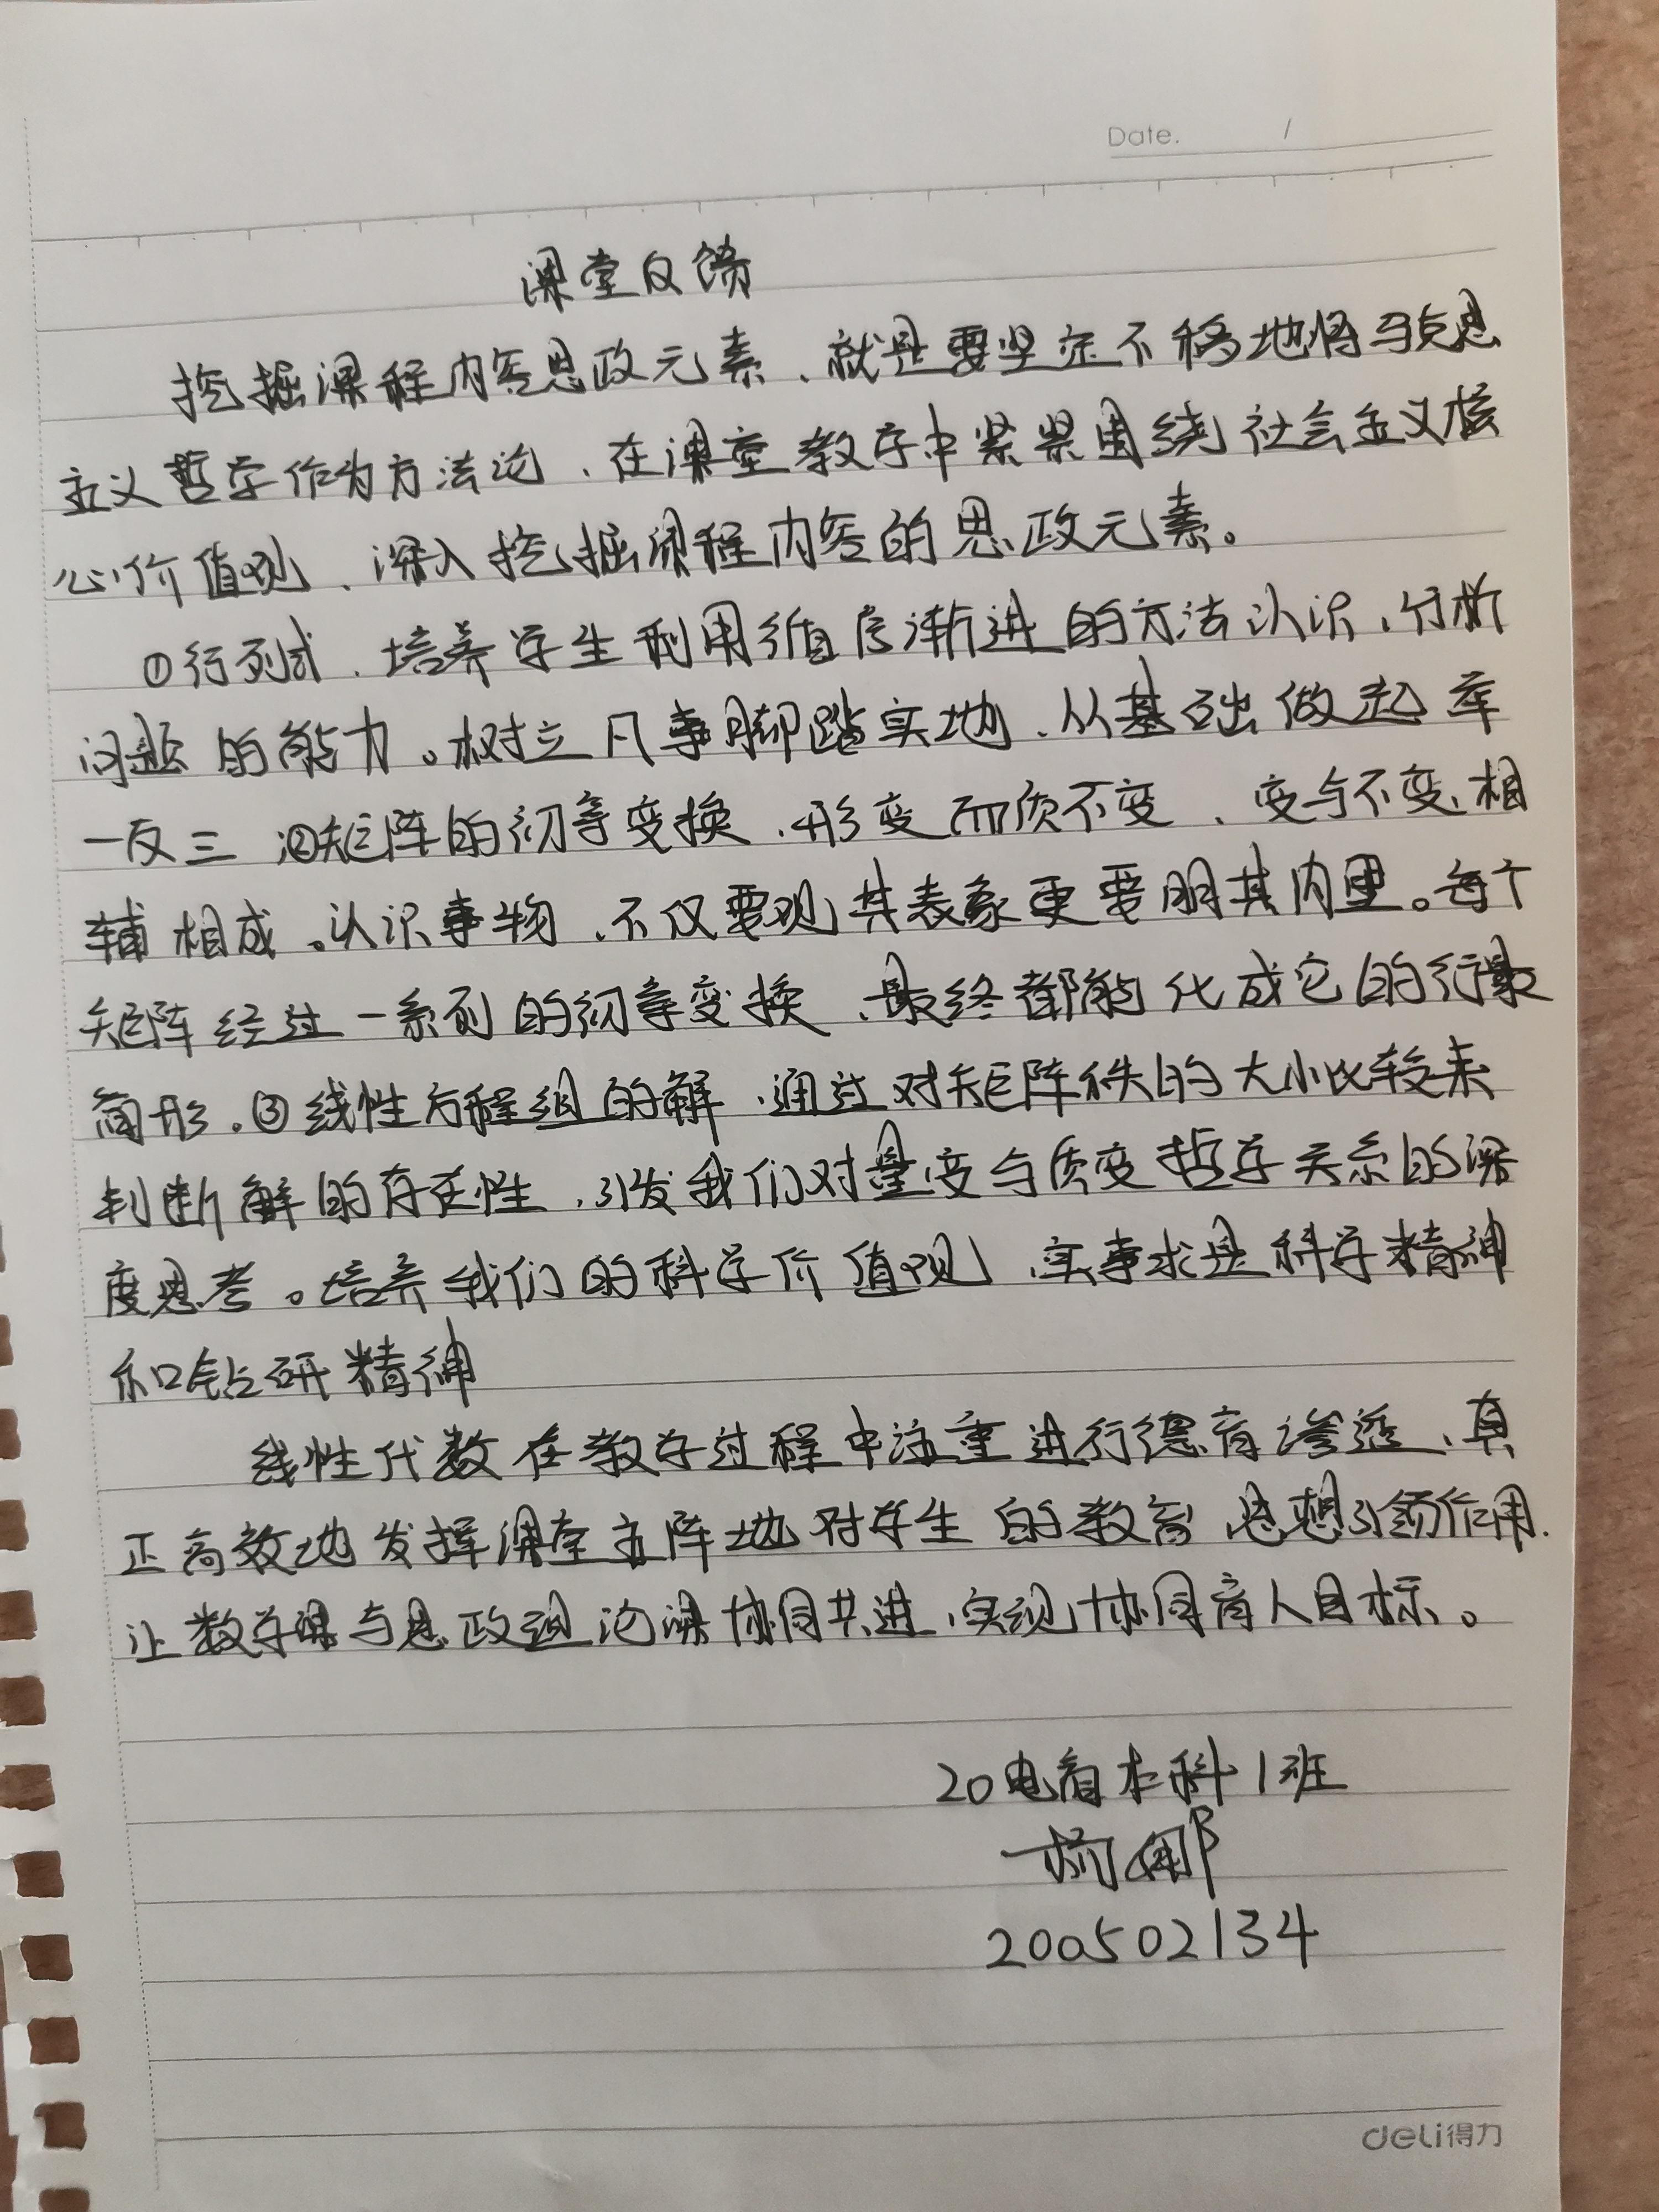 Date. /
课堂反馈
挖掘课程内容思政元素、就是要坚定不移地将马克思
主义哲学作为方法论、在课堂教学中紧紧围绕社会主义核
心价值观、深入挖掘课程内容的思政元素。
①行列式、培养学生利用循序渐进的方法认识、分析
问题的能力。树立凡事脚踏实地、从基础做起举
一反三 ②矩阵的初等变换、形变而质不变、变与不变、相
辅相成。认识事物、不仅要观其表象更要明其内里。每个
矩阵经过一系列的初等变换、最终都能化成它的行最
简形。③线性方程组的解、通过对矩阵秩的大小比较来
判断解的存在性、引发我们对量变与质变哲学关系的深
度思考。培养我们的科学价值观、实事求是科学精神
和钻研精神
线性代数在教学过程中注重进行德育渗透、真
正高效地发挥课堂主阵地对学生的教育 思想引领作用.
让数学课与思政理论课协同共进、实现协同育人目标。
20电商本科1班
娜
200502134
deli得力